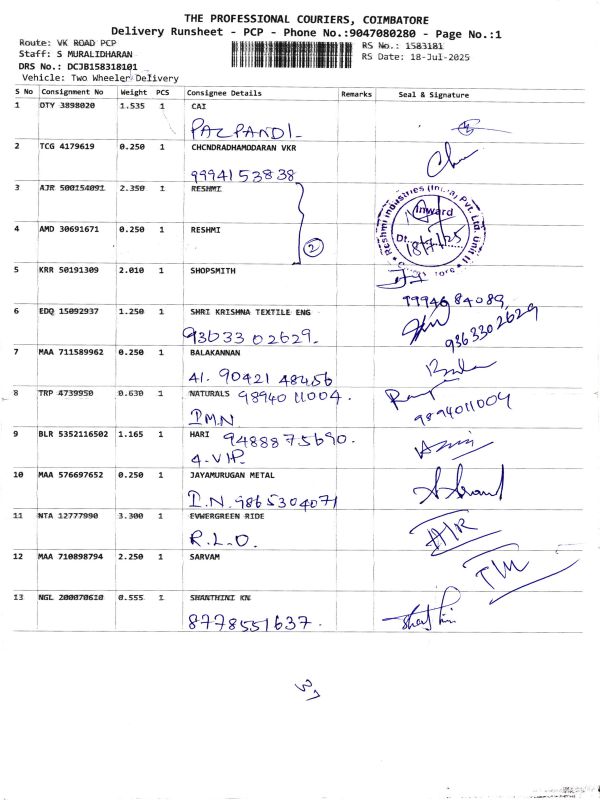 THE PROFESSIONAL COURIERS, COIMBATORE
Delivery Runsheet - PCP - Phone No.:9047080280 - Page No.:1
Route: VK ROAD PCP
Staff: S MURALIDHARAN
DRS No.: DCJB158318101
Vehicle: Two Wheeler Delivery
RS No.: 1583181
RS Date: 18-Jul-2025
S No Consignment No Weight PCS Consignee Details Remarks Seal & Signature
1 OTY 3898020 1.535 1 CAI
PAZPANDI-
2 TCG 4179619 0.250 1 CHCNDRADHAMODARAN VKR
9994153838
3 AJR 500154091 2.350 1 RESHMI
Reshmi Industries (India) Pvt. Ltd. Unit II
Inward
Dt. 18/7/25
4 AMD 30691671 0.250 1 RESHMI
2
5 KRR 50191309 2.010 1 SHOPSMITH
9994684089
6 EDQ 15092937 1.250 1 SHRI KRISHNA TEXTILE ENG
9363302629.
9363302629
7 MAA 711589962 0.250 1 BALAKANNAN
41. 90421 48456
8 TRP 4739950 0.630 1 NATURALS 9894011004.
I.M.N.
9894011004
9 BLR 5352116502 1.165 1 HARI 9488875690.
4.V.H.P.
10 MAA 576697652 0.250 1 JAYAMURUGAN METAL
I.N. 9865304071
11 NTA 12777990 3.300 1 EVWERGREEN RIDE
R.L.O.
12 MAA 710898794 2.250 1 SARVAM
13 NGL 200070610 0.555 1 SHANTHINI KN
8778551637.
37